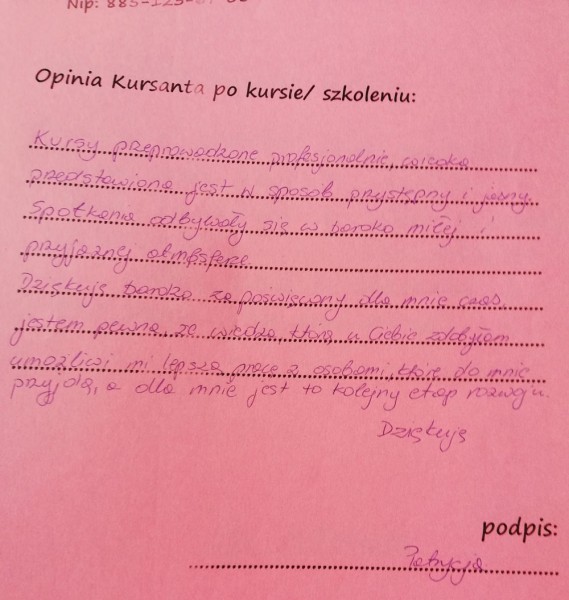 Nip: 885-123-
Opinia Kursanta po kursie/ szkoleniu:
Kursy przeprowadzone profesjonalnie, wiedza
przedstawiona jest w sposób przystępny i jasny.
Spotkania odbywały się w bardzo miłej i
przyjaznej atmosferze
Dziękuję bardzo za poświęcony dla mnie czas
jestem pewna, że wiedza którą u Ciebie zdobyłam
umożliwi mi lepszą pracę z osobami, które do mnie
przyjdą, a dla mnie jest to kolejny etap rozwoju.
Dziękuję
podpis:
Patrycja